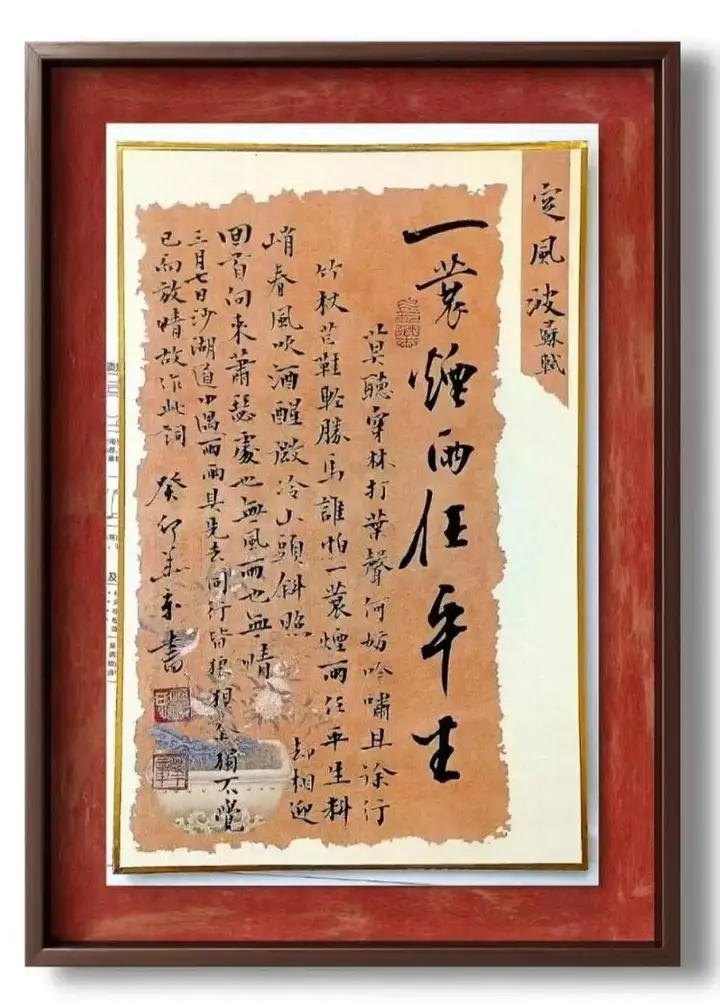 定風波 蘇軾
一蓑煙雨任平生
莫聽穿林打葉聲何妨吟嘯且徐行
竹杖芒鞋輕勝馬誰怕一蓑煙雨任平生料
峭春風吹酒醒微冷山頭斜照却相迎
回首向來蕭瑟處也無風雨也無晴
三月七日沙湖道中遇雨雨具先去同行皆狼狽余獨不覺
已而放晴故作此詞 癸卯 書